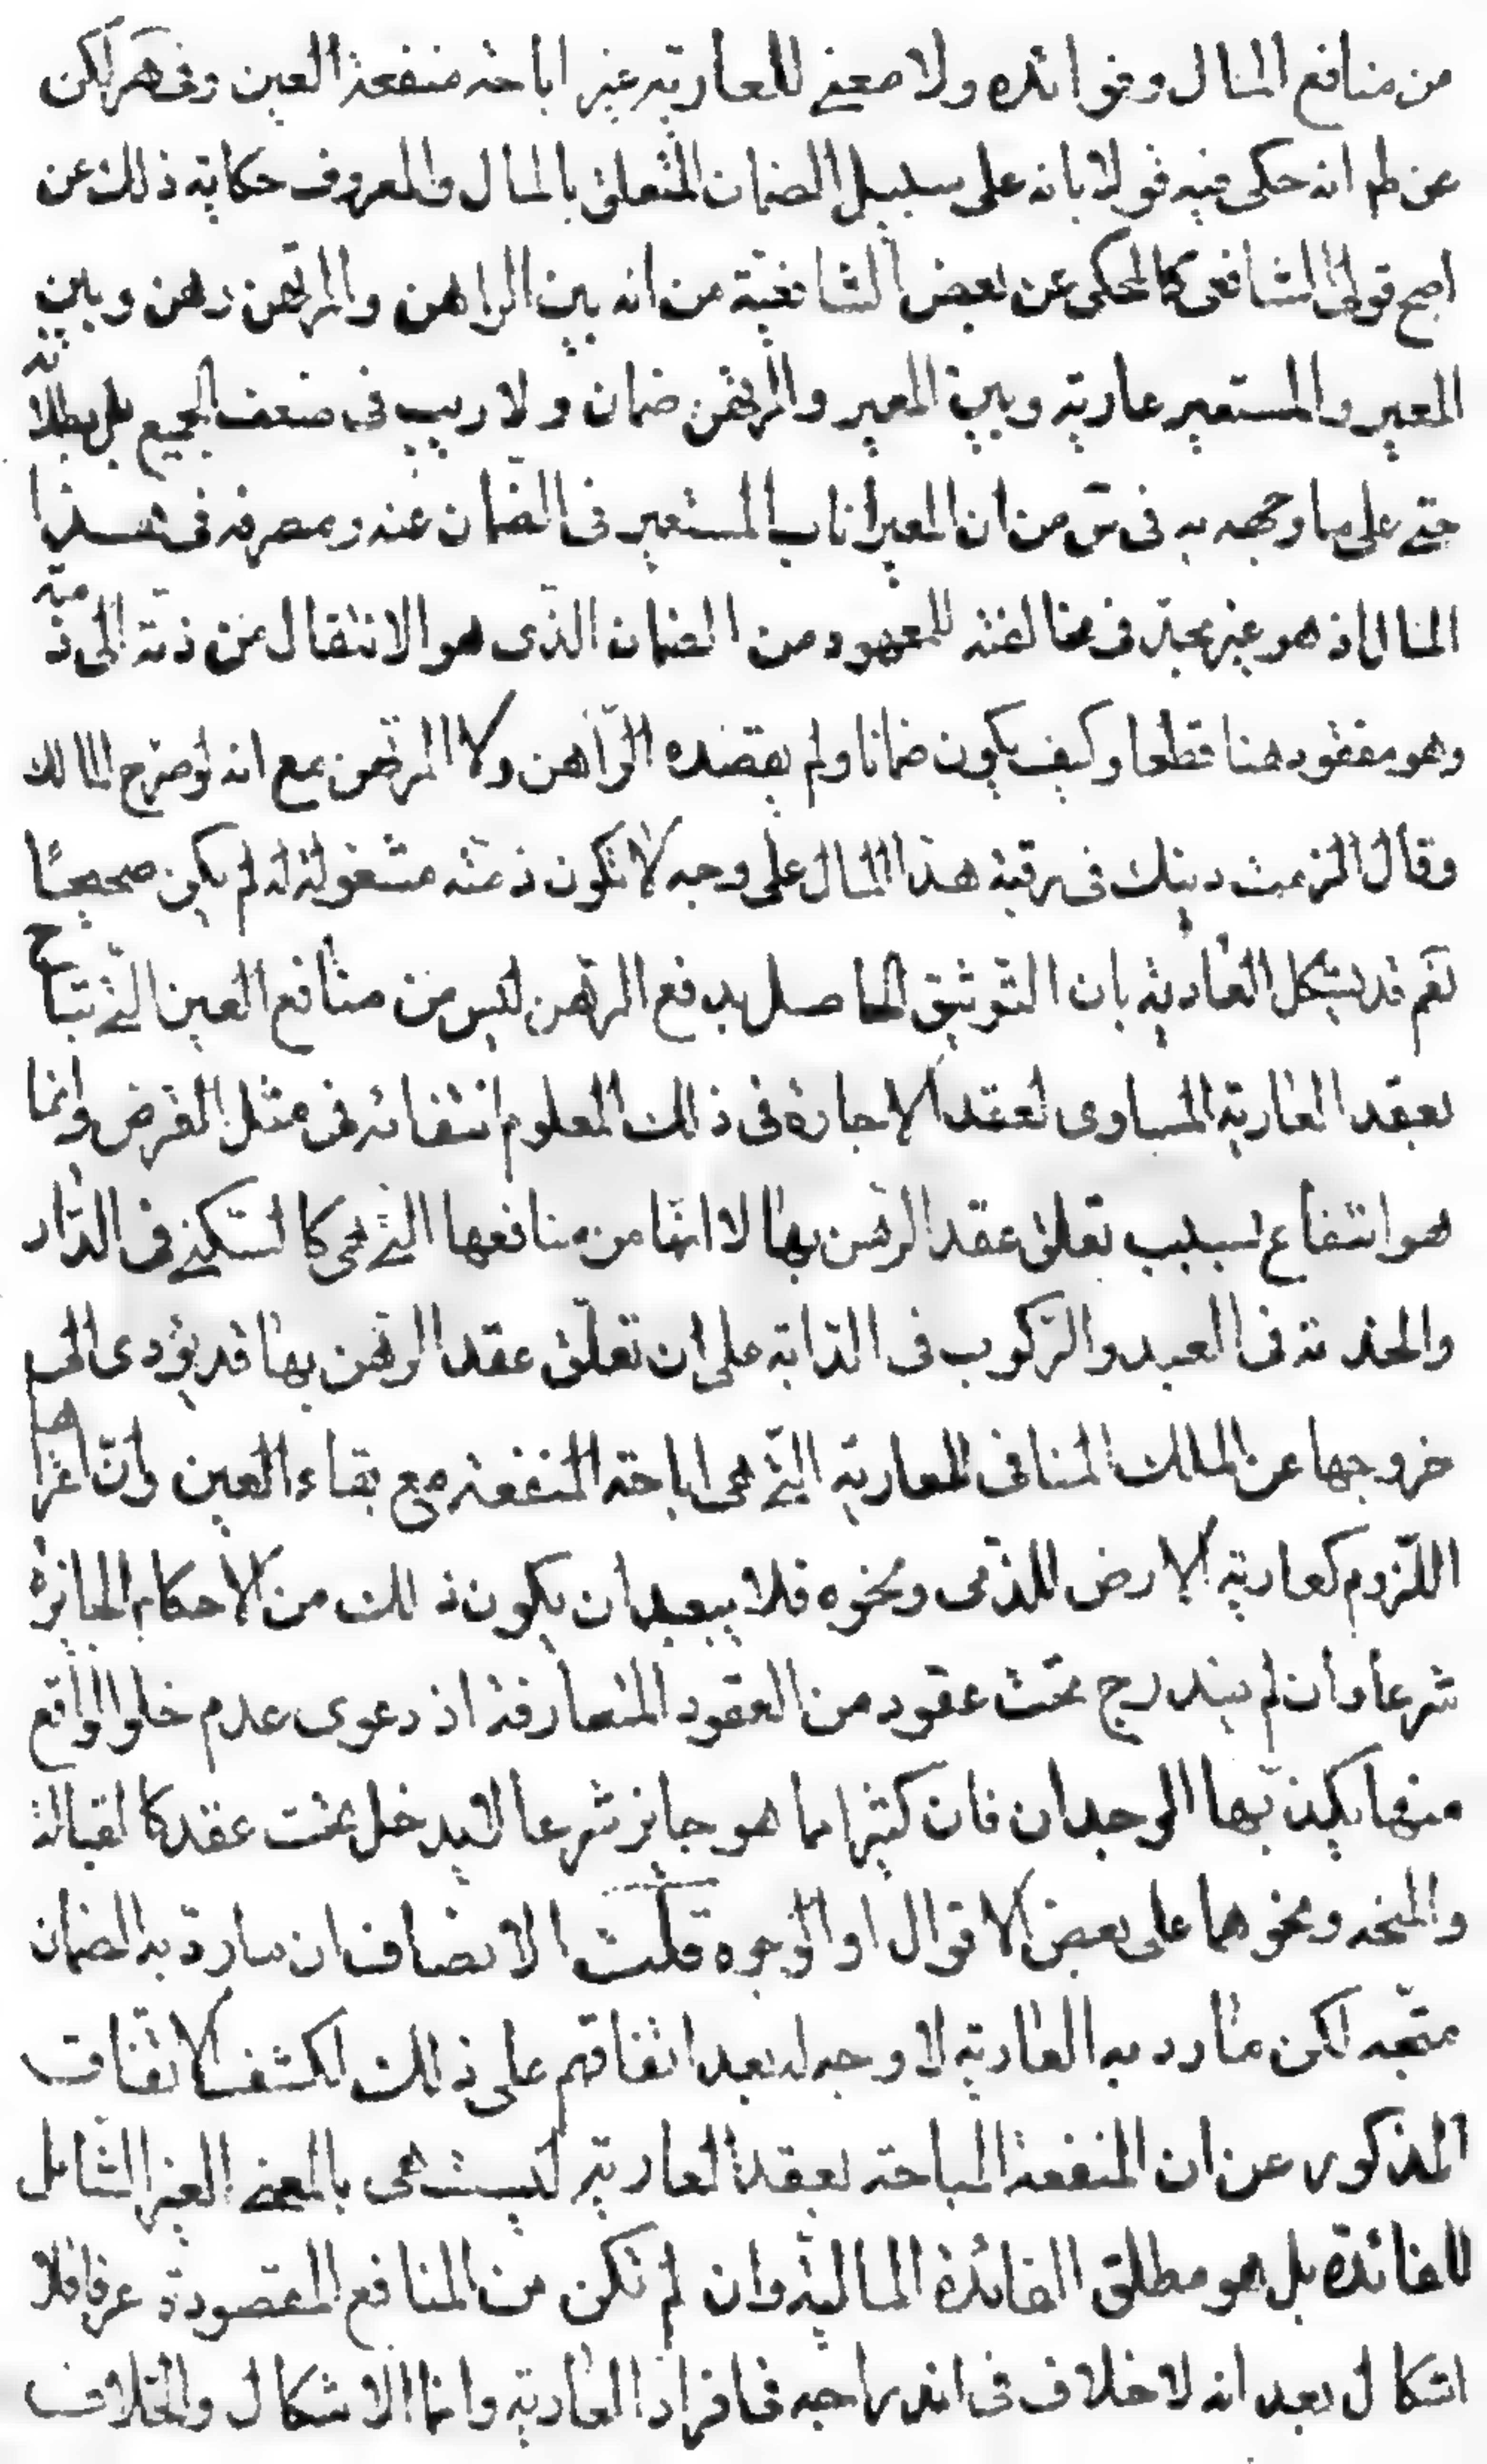 من منافع المال وفوائده ولا معنى للعارية غير اباحة منفعة العين وفى هر لكن
عن ط انه حكى فيه قولا بانه على سبيل الضمان المتعلق بالمال والمعروف حكاية ذلك عن
اصح قولى الشافعى كالمحكى عن بعض الشافعية من انه بين الراهن والمرتهن رهن وبين
المعير والمستعير عارية وبين المعير والمرتهن ضمان ولا ريب فى ضعف الجميع بل بطلانه
حتى على ما وجهه به فى س من ان المعير اناب المستعير فى الضمان عنه ومصرفه فى هذا
المال اذ هو غير مجد فى مخالفته للمعهود من الضمان الذى هو الانتقال من ذمة الى ذمة
وهو مفقود هنا قطعا وكيف يكون ضمانا ولم يقصده الراهن ولا المرتهن مع انه لو صرح المالك
وقال الزمت دينك فى رقبة هذا المال على وجه لا تكون ذمته مشغولة له لم يكن صحيحًا
نعم قد يشكل العارية بان التوثيق الحاصل بدفع الرهن ليس من منافع العين التى تباح
بعقد العارية المساوى لعقد الاجارة فى ذلك المعلوم انتفائه فى مثل الفرض وانما
هو انتفاع بسبب تعلق عقد الرهن بها لا انها من منافعها التى هى كالسكنى فى الدار
والخدمة فى العبد والركوب فى الدابة على ان تعلق عقد الرهن بها قد يؤدى الى
خروجها عن الملك المنافى للعارية التى هى اباحة المنفعة مع بقاء العين وانّ اغراها
اللزوم كعارية الارض للدفن ونحوه فلا يبعد ان يكون ذلك من الاحكام الجائزة
شرعا وان لم يندرج تحت عقود من العقود المتعارفة اذ دعوى عدم خلو الواقع
منها يكذبها الوجدان فان كثيرا مما هو جايز شرعا لا يدخل تحت عقد كالقبالة
والمنحة ونحوهما على بعض الاقوال او الوجوه قلت الانصاف ان ما رد به الضمان
متجه لكن ما رد به العارية لا وجه له بعد اتفاقهم على ذلك لكشف الاتفاق
المذكور عن ان المنفعة المباحة بعقد العارية ليست هى بالمعنى الغير الشامل
للفائدة بل هو مطلق الفائدة المالية وان لم تكن من المنافع المقصودة عرفا فلا
اشكال بعد انه لا خلاف فى اندراجه فى افراد العارية وانما الاشكال والخلاف